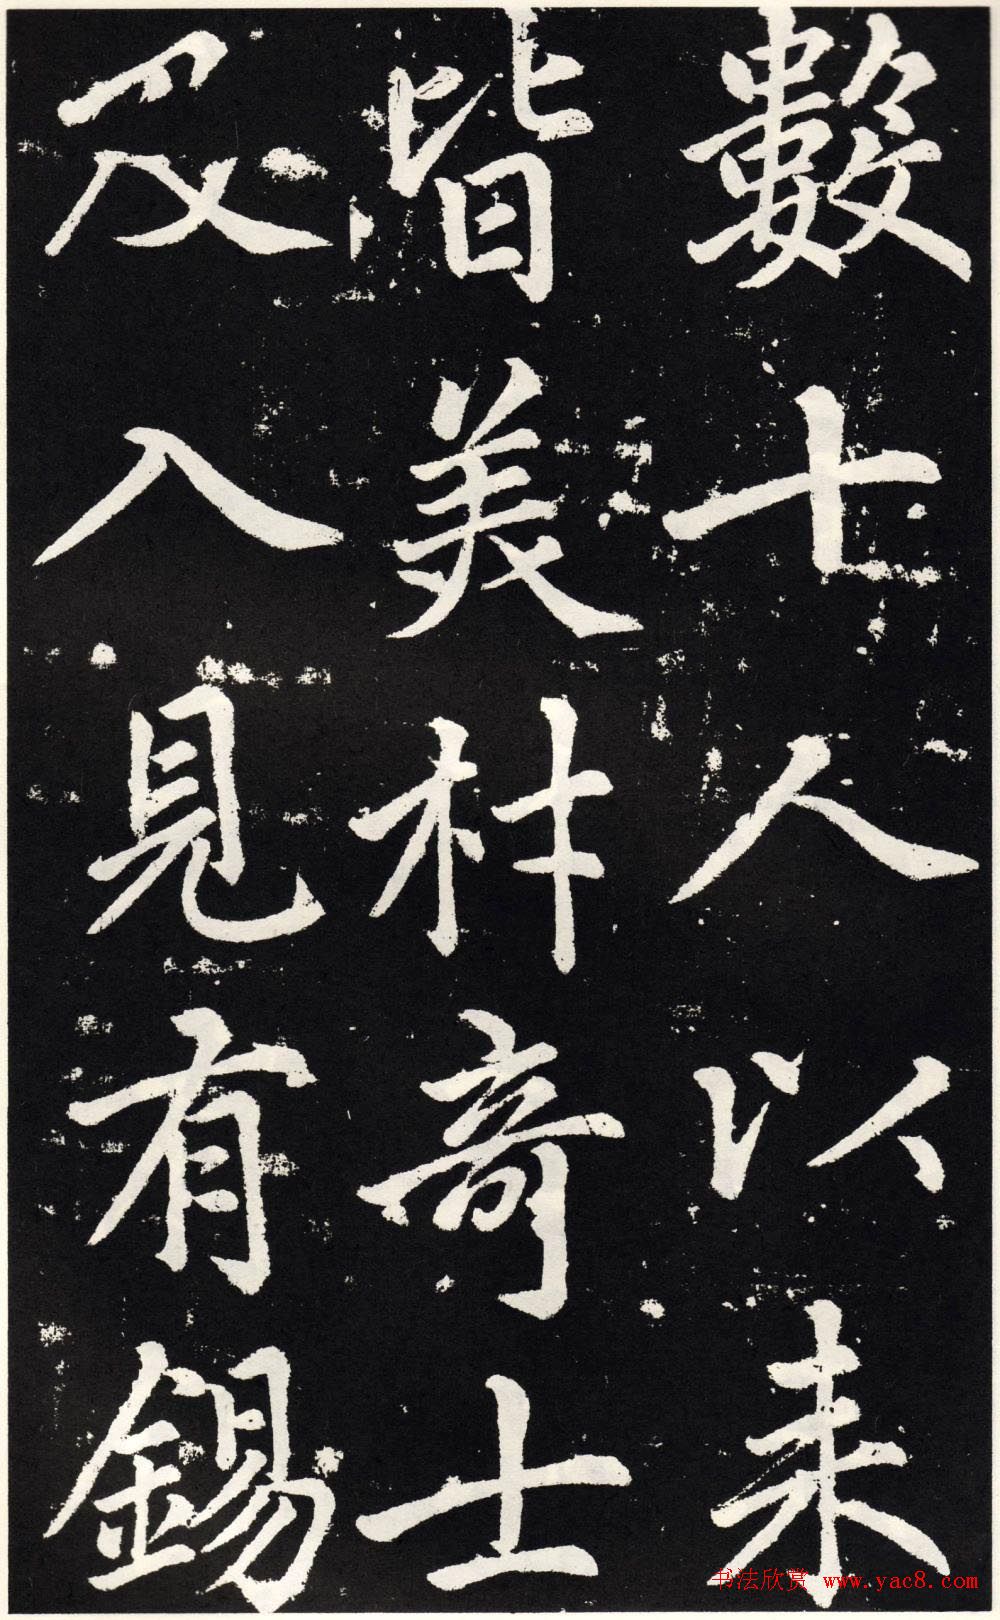 數十人以来
皆美材奇士
及入見有錫
书法欣赏 www.yac8.com